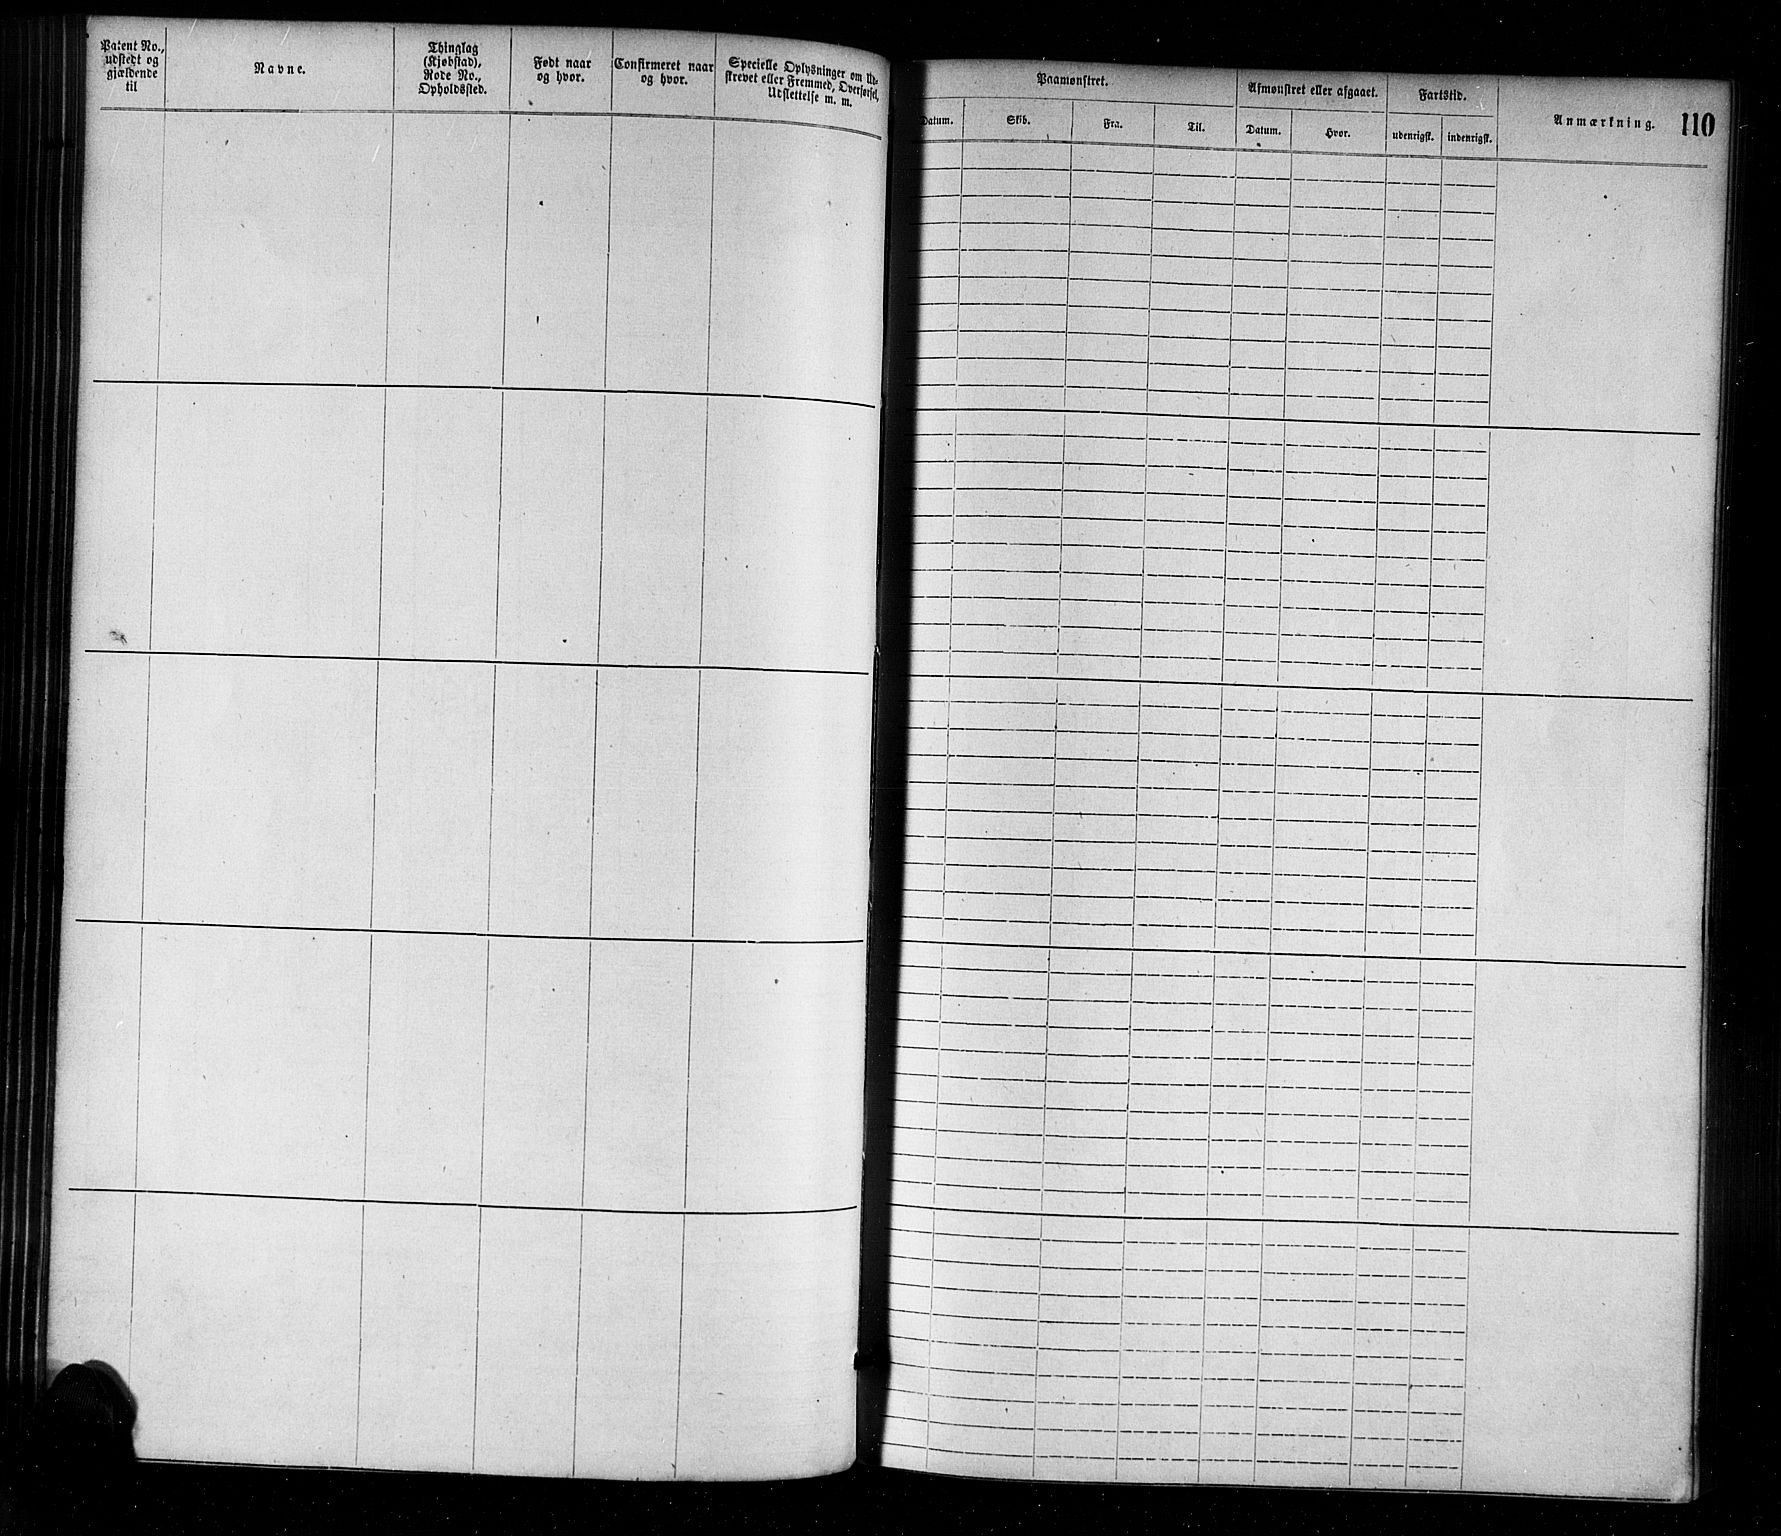 Patent No.,
udstedt og
gjældende
til
Navne.
Thinglag
(Kjøbstad),
Rode No.,
Opholdssted.
Født naar
og hvor.
Confirmeret naar
og hvor.
Specielle Oplysninger om Ud-
skrevet eller Fremmed, Overførsel,
Udslettelse m. m.
Paamønstret.
Datum.
Skib.
Fra.
Til.
Afmønstret eller afgaaet.
Datum.
Hvor.
Fartstid.
udenrigsk.
indenrigsk.
Anmærkning.
110